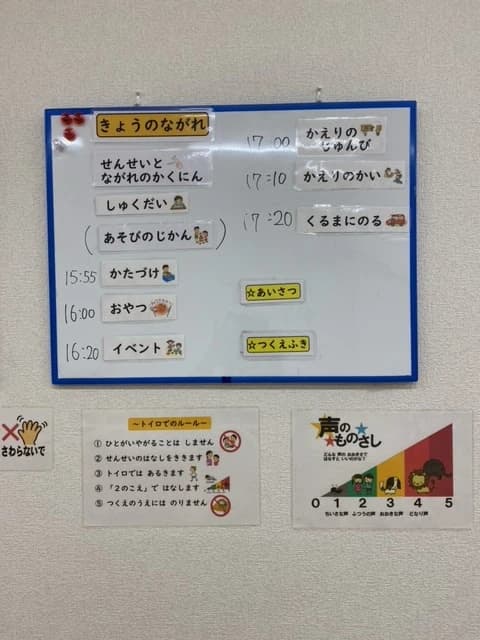 きょうのながれ
せんせいと
ながれのかくにん
しゅくだい
(あそびのじかん)
15:55 かたづけ
16:00 おやつ
16:20 イベント
17 00 かえりの
じゅんび
17:10 かえりのかい
17:20 くるまにのる
☆あいさつ
☆つくえふき
さわらないで
～トイロでのルール～
① ひとがいやがることは しません
② せんせいのはなしをききます
③ トイロでは あるきます
④ 「2のこえ」で はなします
⑤ つくえのうえには のりません
声の
ものさし
どんな 声の おおきさで
はなすと いいのかな？
0 1 2 3 4 5
ちいさな声 ふつうの声 おおきな声 どなり声